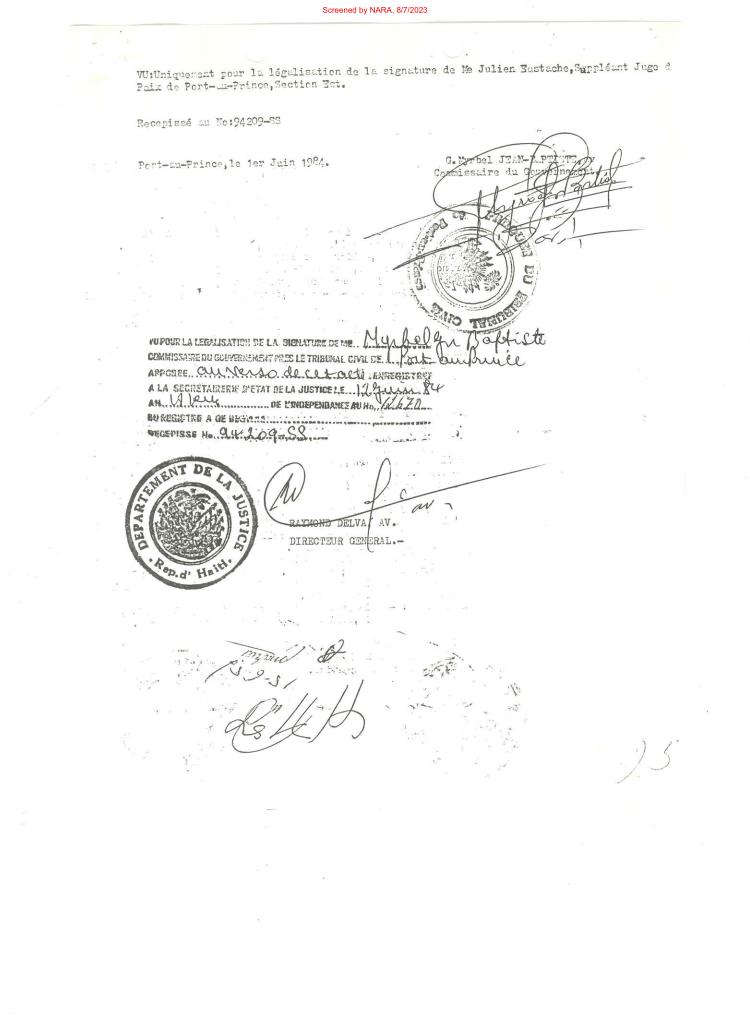 Screened by NARA, 8/7/2023
VU:Uniquement pour la légalisation de la signature de Me Julien Eustache,Suppléant Juge d
Paix de Port-au-Prince,Section Est.
Recepissé au No:94209-SS
Port-au-Prince,le 1er Juin 1984.
G.Myrbel JEAN-BAPTISTE, av
Commissaire du Gouvernement.
DU TRIBUNAL CIVIL
VU POUR LA LEGALISATION DE LA SIGNATURE DE ME. Baptiste
COMMISSAIRE DU GOUVERNEMENT PRES LE TRIBUNAL CIVIL DE Port au Prince
APPOSEE au verso de cet acte ENREGISTREE
A LA SECRETAIRERIE D'ETAT DE LA JUSTICE LE 12 Juin 84
AN 181eme DE L'INDEPENDANCE AU No.
DU REGISTRE A CE DESTINE
RECEPISSE No 94.209-SS
DEPARTEMENT DE LA JUSTICE
Rep.d' Haiti.
RAYMOND DELVA, AV.
DIRECTEUR GENERAL.-